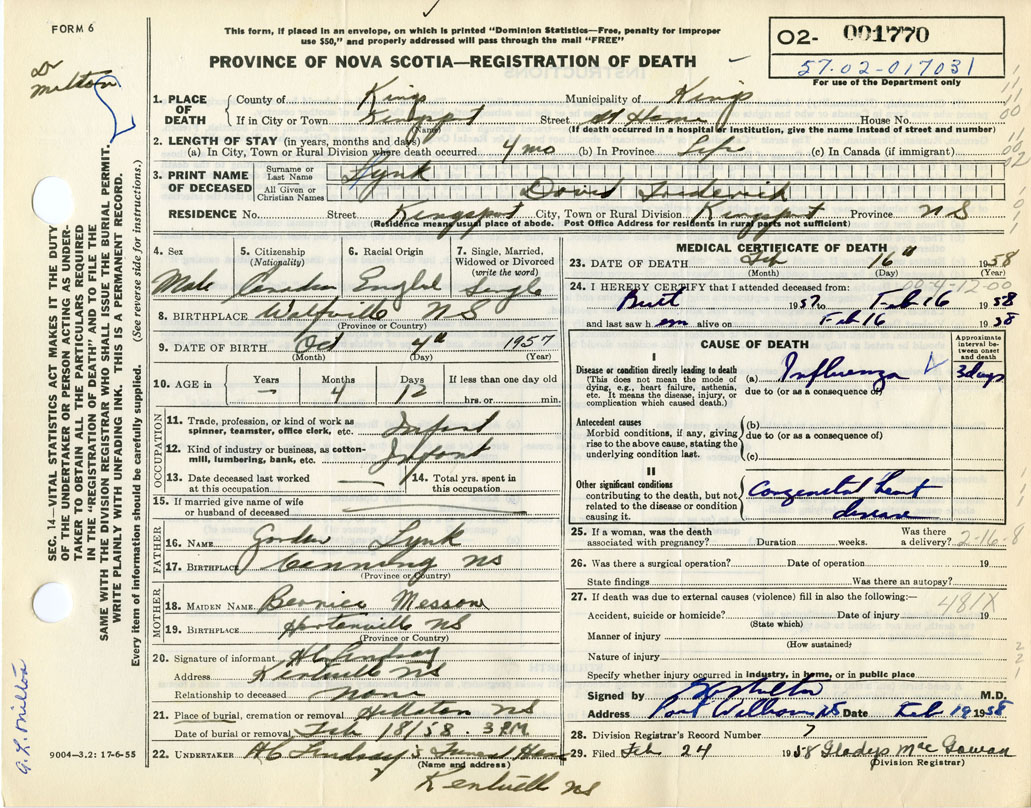 FORM 6
This form, if placed in an envelope, on which is printed "Dominion Statistics—Free, penalty for improper
use $50," and properly addressed will pass through the mail "FREE"
PROVINCE OF NOVA SCOTIA—REGISTRATION OF DEATH
02- 001770
57-02-017031
For use of the Department only
Dr Milton
SEC. 14—VITAL STATISTICS ACT MAKES IT THE DUTY
OF THE UNDERTAKER OR PERSON ACTING AS UNDER-
TAKER TO OBTAIN ALL THE PARTICULARS REQUIRED
IN THE "REGISTRATION OF DEATH" AND TO FILE THE
SAME WITH THE DIVISION REGISTRAR WHO SHALL ISSUE THE BURIAL PERMIT.
WRITE PLAINLY WITH UNFADING INK. THIS IS A PERMANENT RECORD.
Every item of information should be carefully supplied. (See reverse side for instructions.)
1. PLACE OF DEATH County of Kings Municipality of Kings
If in City or Town Kingsport Street At Home House No.
(Name) (If death occurred in a hospital or institution, give the name instead of street and number)
2. LENGTH OF STAY (in years, months and days)
(a) In City, Town or Rural Division where death occurred 4 mo (b) In Province Life (c) In Canada (if immigrant)
3. PRINT NAME OF DECEASED Surname or Last Name Lynk
All Given or Christian Names David Frederick
RESIDENCE No. Street Kingsport City, Town or Rural Division Kingsport Province NS
(Residence means usual place of abode. Post Office Address for residents in rural parts not sufficient)
4. Sex Male
5. Citizenship (Nationality) Canadian
6. Racial Origin English
7. Single, Married, Widowed or Divorced (write the word) Single
8. BIRTHPLACE Wolfville NS
(Province or Country)
9. DATE OF BIRTH Oct 4th 1957
(Month) (Day) (Year)
10. AGE in Years — Months 4 Days 12 If less than one day old hrs. or min.
OCCUPATION
11. Trade, profession, or kind of work as spinner, teamster, office clerk, etc. Infant
12. Kind of industry or business, as cotton-mill, lumbering, bank, etc. Infant
13. Date deceased last worked at this occupation
14. Total yrs. spent in this occupation
15. If married give name of wife or husband of deceased
FATHER
16. NAME Gordon Lynk
17. BIRTHPLACE Canning NS
(Province or Country)
MOTHER
18. MAIDEN NAME Bernice Messom
19. BIRTHPLACE Hortonville NS
(Province or Country)
20. Signature of informant HC Lindsay
Address Kentville NS
Relationship to deceased None
21. Place of burial, cremation or removal NS
Date of burial or removal Feb 18/58. 3 PM
22. UNDERTAKER HC Lindsay's Funeral Home
(Name and address)
Kentville NS
9004—3.2: 17-6-55
G. L. Milton
MEDICAL CERTIFICATE OF DEATH
23. DATE OF DEATH Feb 16th 1958
(Month) (Day) (Year)
24. I HEREBY CERTIFY that I attended deceased from:
00-4-12-00
Birth 1957 to Feb 16 1958
and last saw h em alive on Feb 16 1958
CAUSE OF DEATH
Approximate interval between onset and death
I
Disease or condition directly leading to death
(This does not mean the mode of dying, e.g., heart failure, asthenia, etc. It means the disease, injury, or complication which caused death.)
(a) Influenza 3 days
due to (or as a consequence of)
Antecedent causes
Morbid conditions, if any, giving rise to the above cause, stating the underlying condition last.
(b)
due to (or as a consequence of)
(c)
II
Other significant conditions
contributing to the death, but not related to the disease or condition causing it.
Congenital heart
disease
25. If a woman, was the death associated with pregnancy? Duration weeks. Was there a delivery?
2-16-8
26. Was there a surgical operation? Date of operation 19
State findings Was there an autopsy?
27. If death was due to external causes (violence) fill in also the following:—
481X
Accident, suicide or homicide? Date of injury 19
(State which)
Manner of injury
(How sustained)
Nature of injury
Specify whether injury occurred in industry, in home, or in public place
Signed by G L Milton M.D.
Address Port Williams NS Date Feb 19 1958
28. Division Registrar's Record Number 7
29. Filed Feb 24 1958 Gladys MacGowan
(Division Registrar)